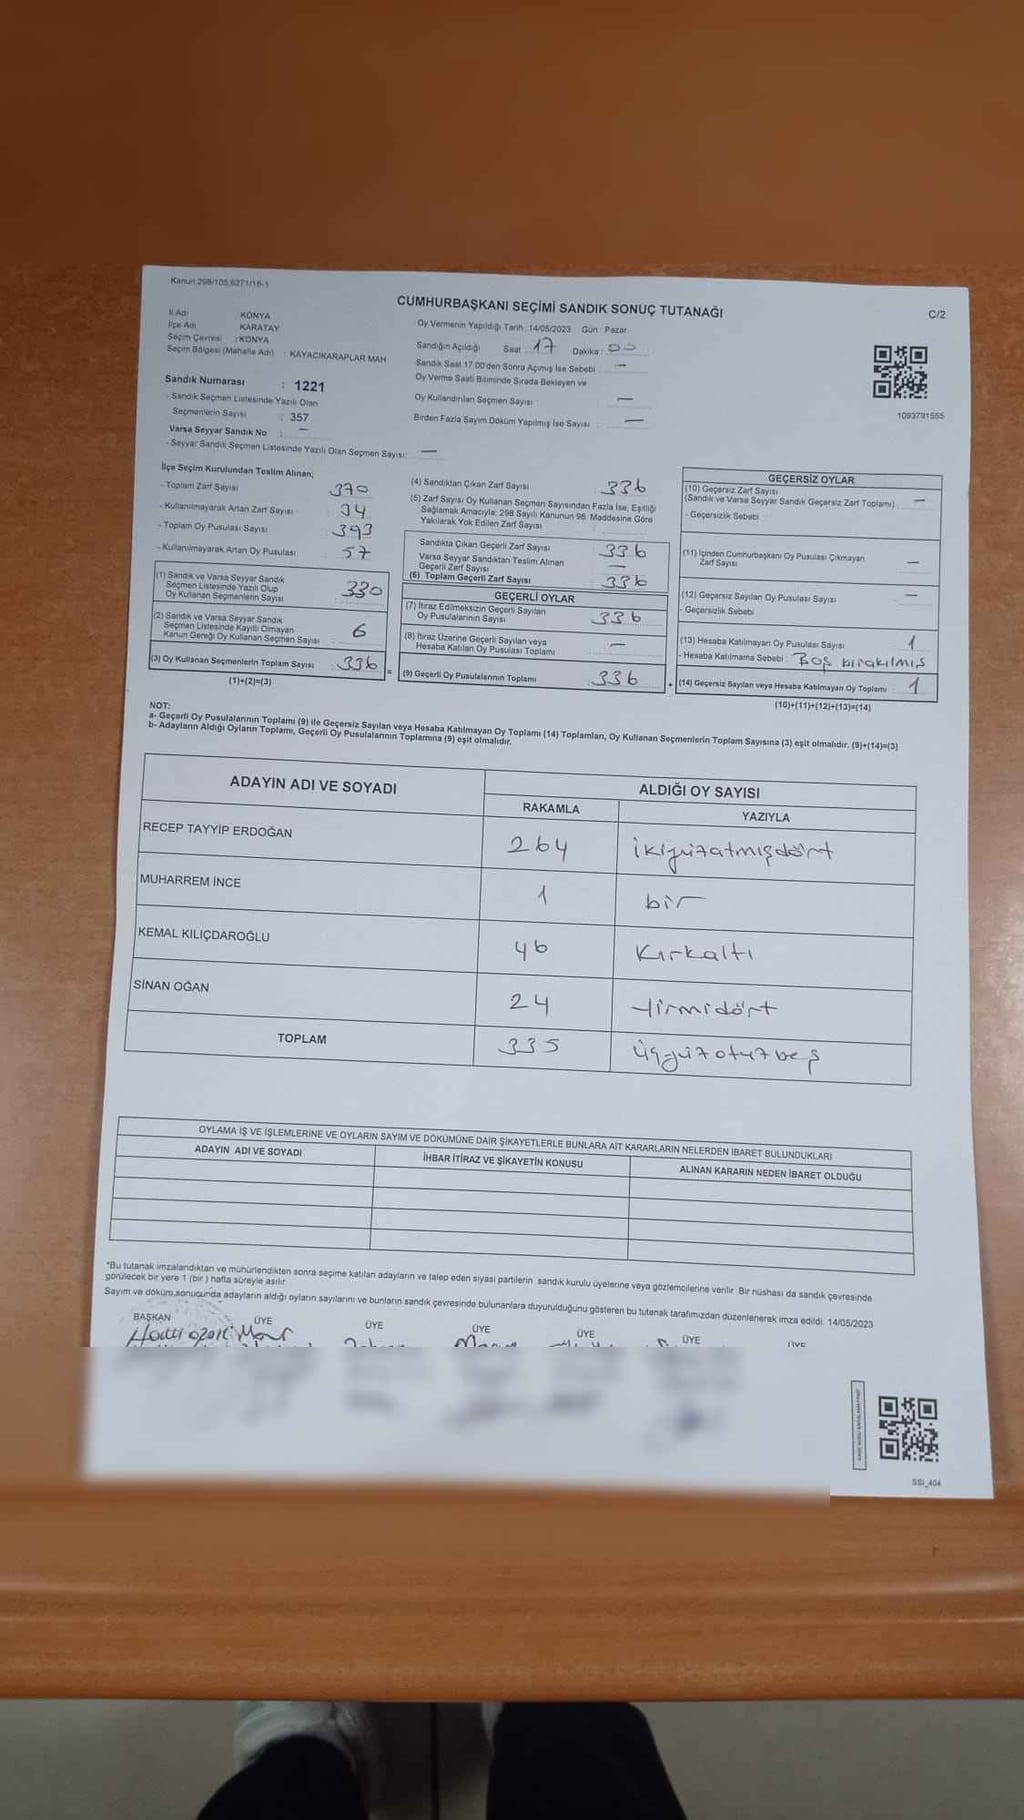 Kanun:298/105,6271/16-1
CUMHURBAŞKANI SEÇİMİ SANDIK SONUÇ TUTANAĞI
C/2
İl Adı KONYA
İlçe Adı KARATAY
Seçim Çevresi : KONYA
Seçim Bölgesi (Mahalle Adı) : KAYACIKARAPLAR MAH
Oy Vermenin Yapıldığı Tarih : 14/05/2023 Gün : Pazar
Sandığın Açıldığı Saat 17 Dakika : 00
Sandık Saat 17.00'den Sonra Açımış İse Sebebi —
Oy Verme Saati Bitiminde Sırada Bekleyen ve
Oy Kullandırılan Seçmen Sayısı —
Birden Fazla Sayım Döküm Yapılmış İse Sayısı : —
1093791555
Sandık Numarası : 1221
- Sandık Seçmen Listesinde Yazılı Olan
Seçmenlerin Sayısı : 357
Varsa Seyyar Sandık No : —
- Seyyar Sandık Seçmen Listesinde Yazılı Olan Seçmen Sayısı: —
İlçe Seçim Kurulundan Teslim Alınan;
- Toplam Zarf Sayısı 370
- Kullanılmayarak Artan Zarf Sayısı : 34
- Toplam Oy Pusulası Sayısı : 393
- Kullanılmayarak Artan Oy Pusulası : 57
(1) Sandık ve Varsa Seyyar Sandık
Seçmen Listesinde Yazılı Olup
Oy Kullanan Seçmenlerin Sayısı : 330
(2) Sandık ve Varsa Seyyar Sandık
Seçmen Listesinde Kayıtlı Olmayan
Kanun Gereği Oy Kullanan Seçmen Sayısı : 6
(3) Oy Kullanan Seçmenlerin Toplam Sayısı : 336
(1)+(2)=(3)
=
(4) Sandıktan Çıkan Zarf Sayısı : 336
(5) Zarf Sayısı Oy Kullanan Seçmen Sayısından Fazla İse, Eşitliği
Sağlamak Amacıyla; 298 Sayılı Kanunun 98. Maddesine Göre
Yakılarak Yok Edilen Zarf Sayısı
Sandıkta Çıkan Geçerli Zarf Sayısı 336
Varsa Seyyar Sandıktan Teslim Alınan
Geçerli Zarf Sayısı —
(6) Toplam Geçerli Zarf Sayısı 336
GEÇERLİ OYLAR
(7) İtiraz Edilmeksizin Geçerli Sayılan
Oy Pusulalarının Sayısı : 336
(8) İtiraz Üzerine Geçerli Sayılan veya
Hesaba Katılan Oy Pusulası Toplamı : —
(9) Geçerli Oy Pusulalarının Toplamı : 336
+
GEÇERSİZ OYLAR
(10) Geçersiz Zarf Sayısı
(Sandık ve Varsa Seyyar Sandık Geçersiz Zarf Toplamı) : —
- Geçersizlik Sebebi
(11) İçinden Cumhurbaşkanı Oy Pusulası Çıkmayan
Zarf Sayısı : —
(12) Geçersiz Sayılan Oy Pusulası Sayısı : —
- Geçersizlik Sebebi
(13) Hesaba Katılmayan Oy Pusulası Sayısı : 1
- Hesaba Katılmama Sebebi : Boş bırakılmış
(14) Geçersiz Sayılan veya Hesaba Katılmayan Oy Toplamı : 1
(10)+(11)+(12)+(13)=(14)
NOT:
a- Geçerli Oy Pusulalarının Toplamı (9) ile Geçersiz Sayılan veya Hesaba Katılmayan Oy Toplamı (14) Toplamları, Oy Kullanan Seçmenlerin Toplam Sayısına (3) eşit olmalıdır. (9)+(14)=(3)
b- Adayların Aldığı Oyların Toplamı, Geçerli Oy Pusulalarının Toplamına (9) eşit olmalıdır.
ADAYIN ADI VE SOYADI
ALDIĞI OY SAYISI
RAKAMLA YAZIYLA
RECEP TAYYİP ERDOĞAN 264 ikiyüzatmışdört
MUHARREM İNCE 1 bir
KEMAL KILIÇDAROĞLU 46 Kırkaltı
SİNAN OĞAN 24 Yirmidört
TOPLAM 335 Üçyüzotuzbeş
OYLAMA İŞ VE İŞLEMLERİNE VE OYLARIN SAYIM VE DÖKÜMÜNE DAİR ŞİKAYETLERLE BUNLARA AİT KARARLARIN NELERDEN İBARET BULUNDUKLARI
ADAYIN ADI VE SOYADI İHBAR İTİRAZ VE ŞİKAYETİN KONUSU ALINAN KARARIN NEDEN İBARET OLDUĞU
*Bu tutanak imzalandıktan ve mühürlendikten sonra seçime katılan adayların ve talep eden siyasi partilerin sandık kurulu üyelerine veya gözlemcilerine verilir. Bir nüshası da sandık çevresinde
görülecek bir yere 1 (bir ) hafta süreyle asılır.
Sayım ve döküm sonucunda adayların aldığı oyların sayılarını ve bunların sandık çevresinde bulunanlara duyurulduğunu gösteren bu tutanak tarafımızdan düzenlenerek imza edildi. 14/05/2023
BAŞKAN ÜYE ÜYE ÜYE ÜYE ÜYE ÜYE
SSI_404